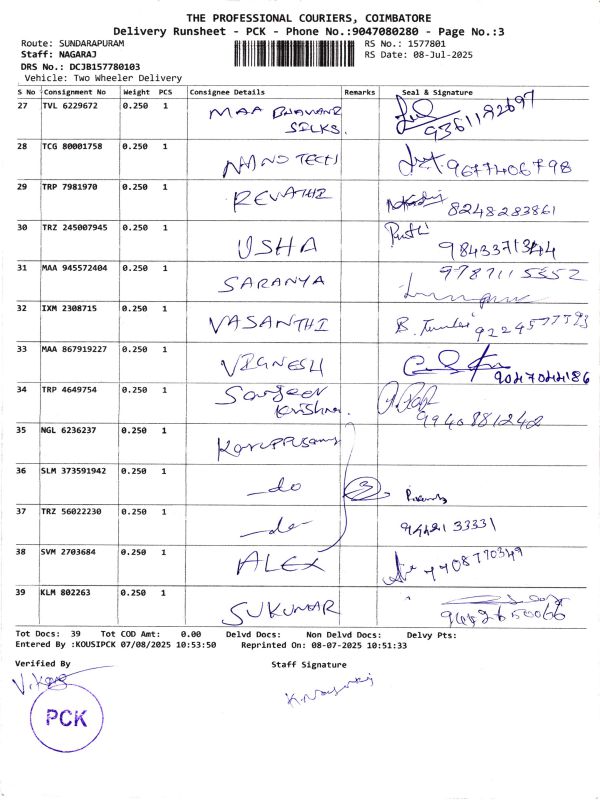 THE PROFESSIONAL COURIERS, COIMBATORE
Delivery Runsheet - PCK - Phone No.:9047080280 - Page No.:3
Route: SUNDARAPURAM RS No.: 1577801
Staff: NAGARAJ RS Date: 08-Jul-2025
DRS No.: DCJB157780103
Vehicle: Two Wheeler Delivery
S No Consignment No Weight PCS Consignee Details Remarks Seal & Signature
27 TVL 6229672 0.250 1 MAA BHAVANI
SILKS. 9361192697
28 TCG 80001758 0.250 1 NANO TECH 9677406798
29 TRP 7981970 0.250 1 REVATHI 8248283861
30 TRZ 245007945 0.250 1 USHA 9843371344
31 MAA 945572404 0.250 1 SARANYA 9787115352
32 IXM 2308715 0.250 1 VASANTHI B. 9224577593
33 MAA 867919227 0.250 1 VIGNESH 9047044186
34 TRP 4649754 0.250 1 Sanjeev
Krishna. 9940881242
35 NGL 6236237 0.250 1 Karuppusamy
36 SLM 373591942 0.250 1 —do 3
37 TRZ 56022230 0.250 1 —do— 9442133331
38 SVM 2703684 0.250 1 ALEX 7708770349
39 KLM 802263 0.250 1 SUKUMAR 9452650066
Tot Docs: 39 Tot COD Amt: 0.00 Delvd Docs: Non Delvd Docs: Delvy Pts:
Entered By :KOUSIPCK 07/08/2025 10:53:50 Reprinted On: 08-07-2025 10:51:33
Verified By Staff Signature
K. Nagaraj
PCK